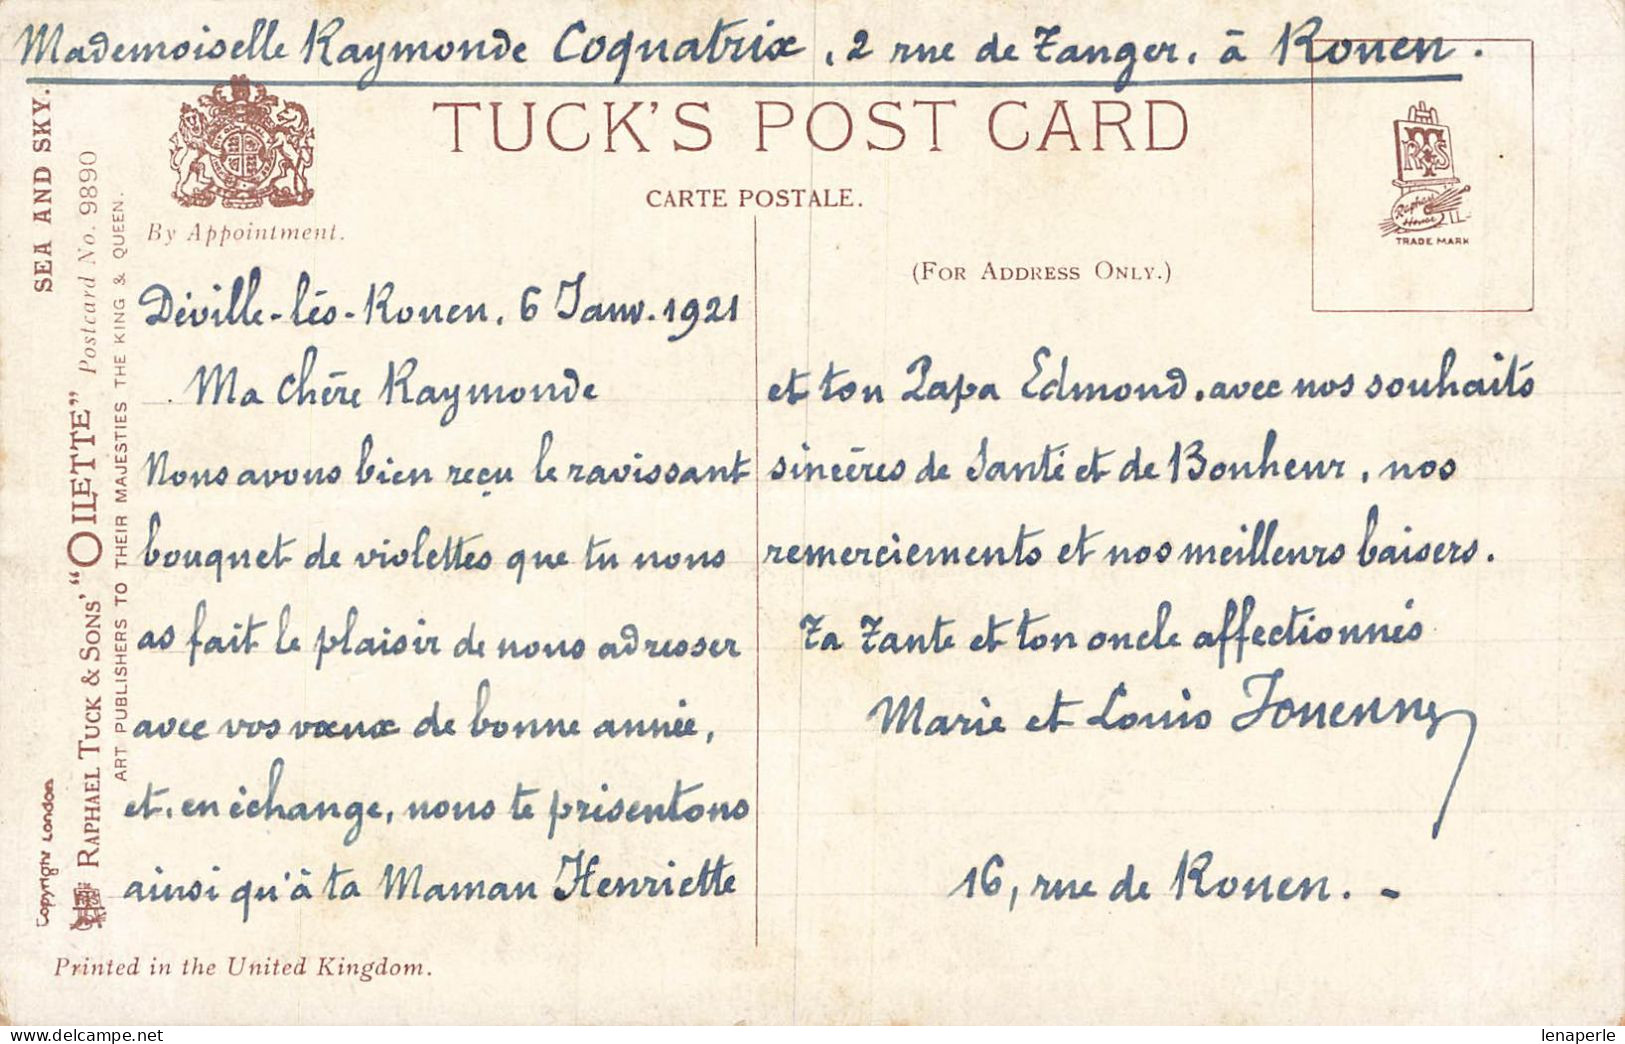 Mademoiselle Raymonde Coquatrix, 2 rue de Tanger, à Rouen.
TUCK'S POST CARD
CARTE POSTALE.
(FOR ADDRESS ONLY.)
By Appointment.
RTS
Raphael House
TRADE MARK
SEA AND SKY.
RAPHAEL TUCK & SONS' "OILETTE" Postcard No. 9890
ART PUBLISHERS TO THEIR MAJESTIES THE KING & QUEEN.
Copyright London
Déville-lès-Rouen, 6 Janv. 1921
Ma chère Raymonde
Nous avons bien reçu le ravissant
bouquet de violettes que tu nous
as fait le plaisir de nous adresser
avec vos vœux de bonne année,
et, en échange, nous te présentons
ainsi qu'à ta Maman Henriette
et ton Papa Edmond, avec nos souhaits
sincères de Santé et de Bonheur, nos
remerciements et nos meilleurs baisers.
Ta Tante et ton oncle affectionnés
Marie et Louis Jouenne
16, rue de Rouen. -
Printed in the United Kingdom.
lenaperle
www.delcampe.net